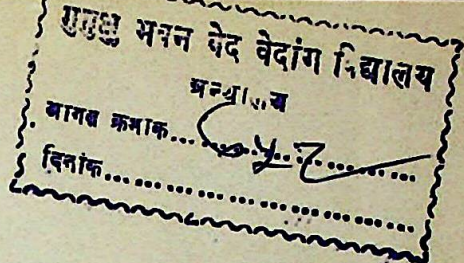 मुमुक्षु भवन वेद वेदांग विद्यालय
ग्रन्थालय
आगत क्रमाक...............
दिनांक...............